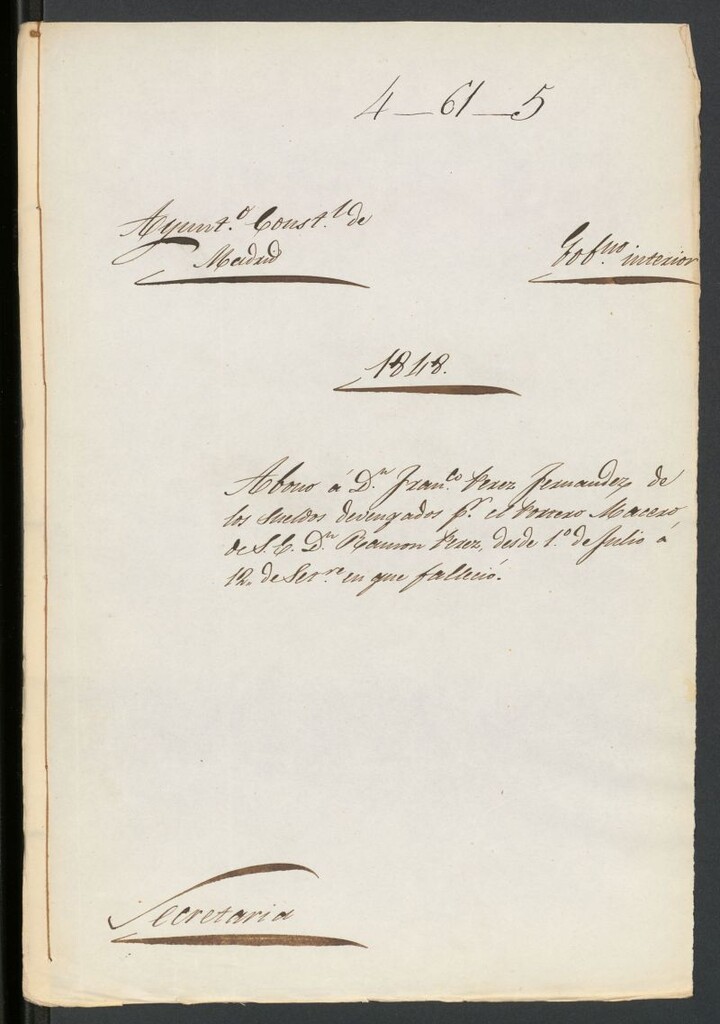 4—61—5
Ayunt.º Const.l de
Madrid
Gobno. interior
1848.
Abono á D.n Fran.co Perez Fernandez, de
los sueldos devengados p.r el Portero Macero
de S.E. D.n Ramon Perez, desde 1.º de Julio á
12, de Sere. en que falleció.
Secretaria